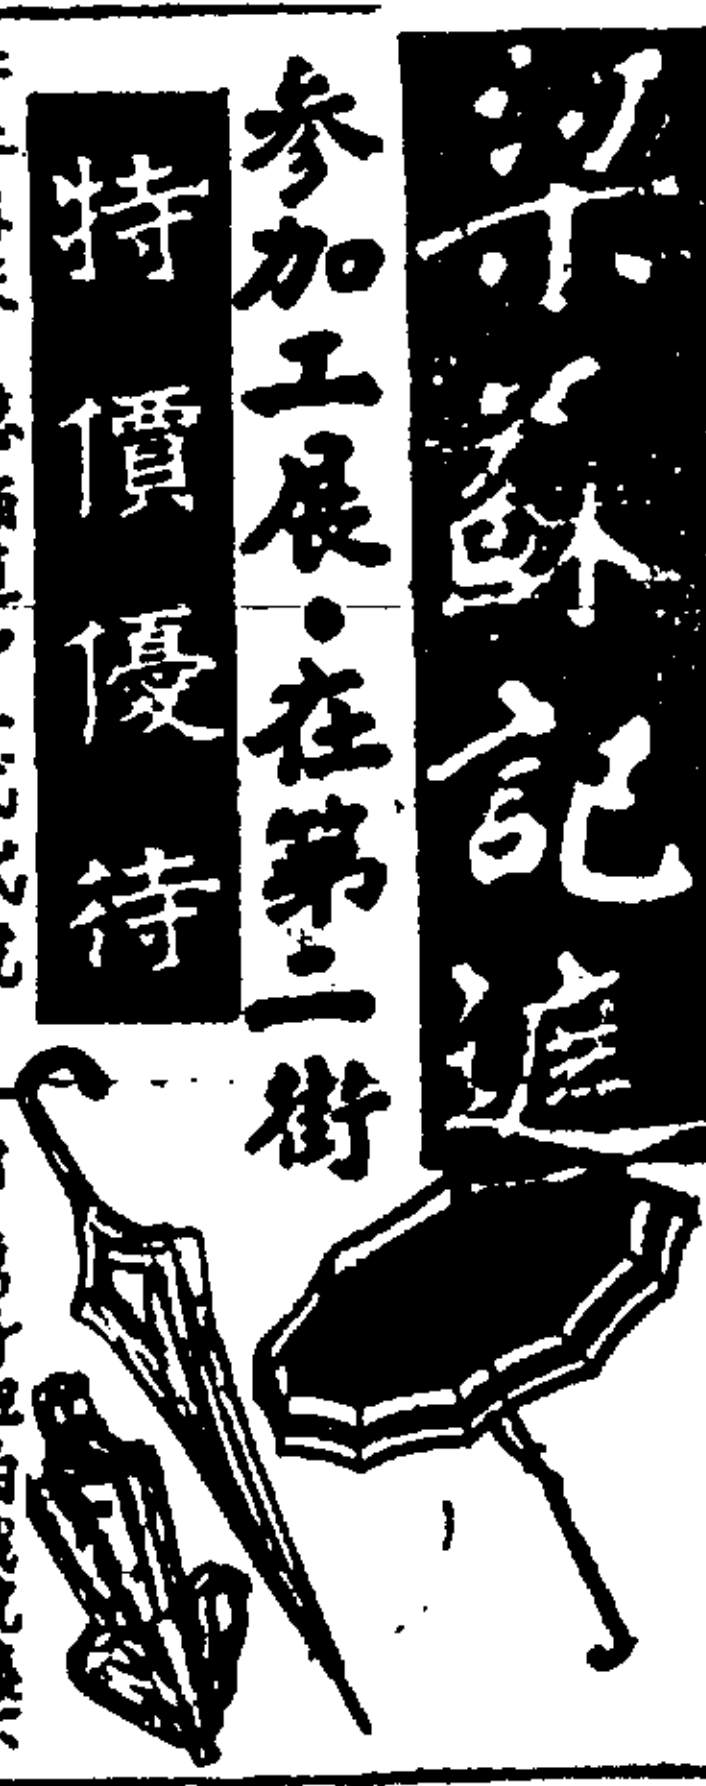 梁蘇記遮
參加工展・在第二街
特價優待